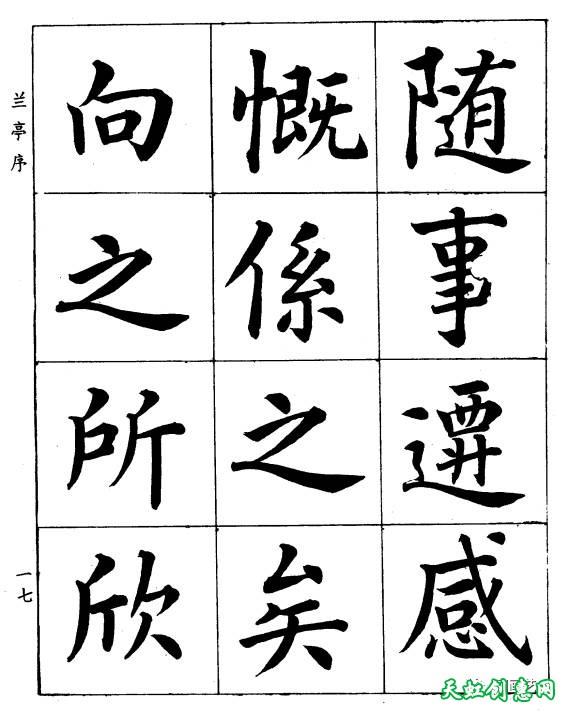 随事遷感
慨係之矣
向之所欣
兰亭序
一七
天虹创意网